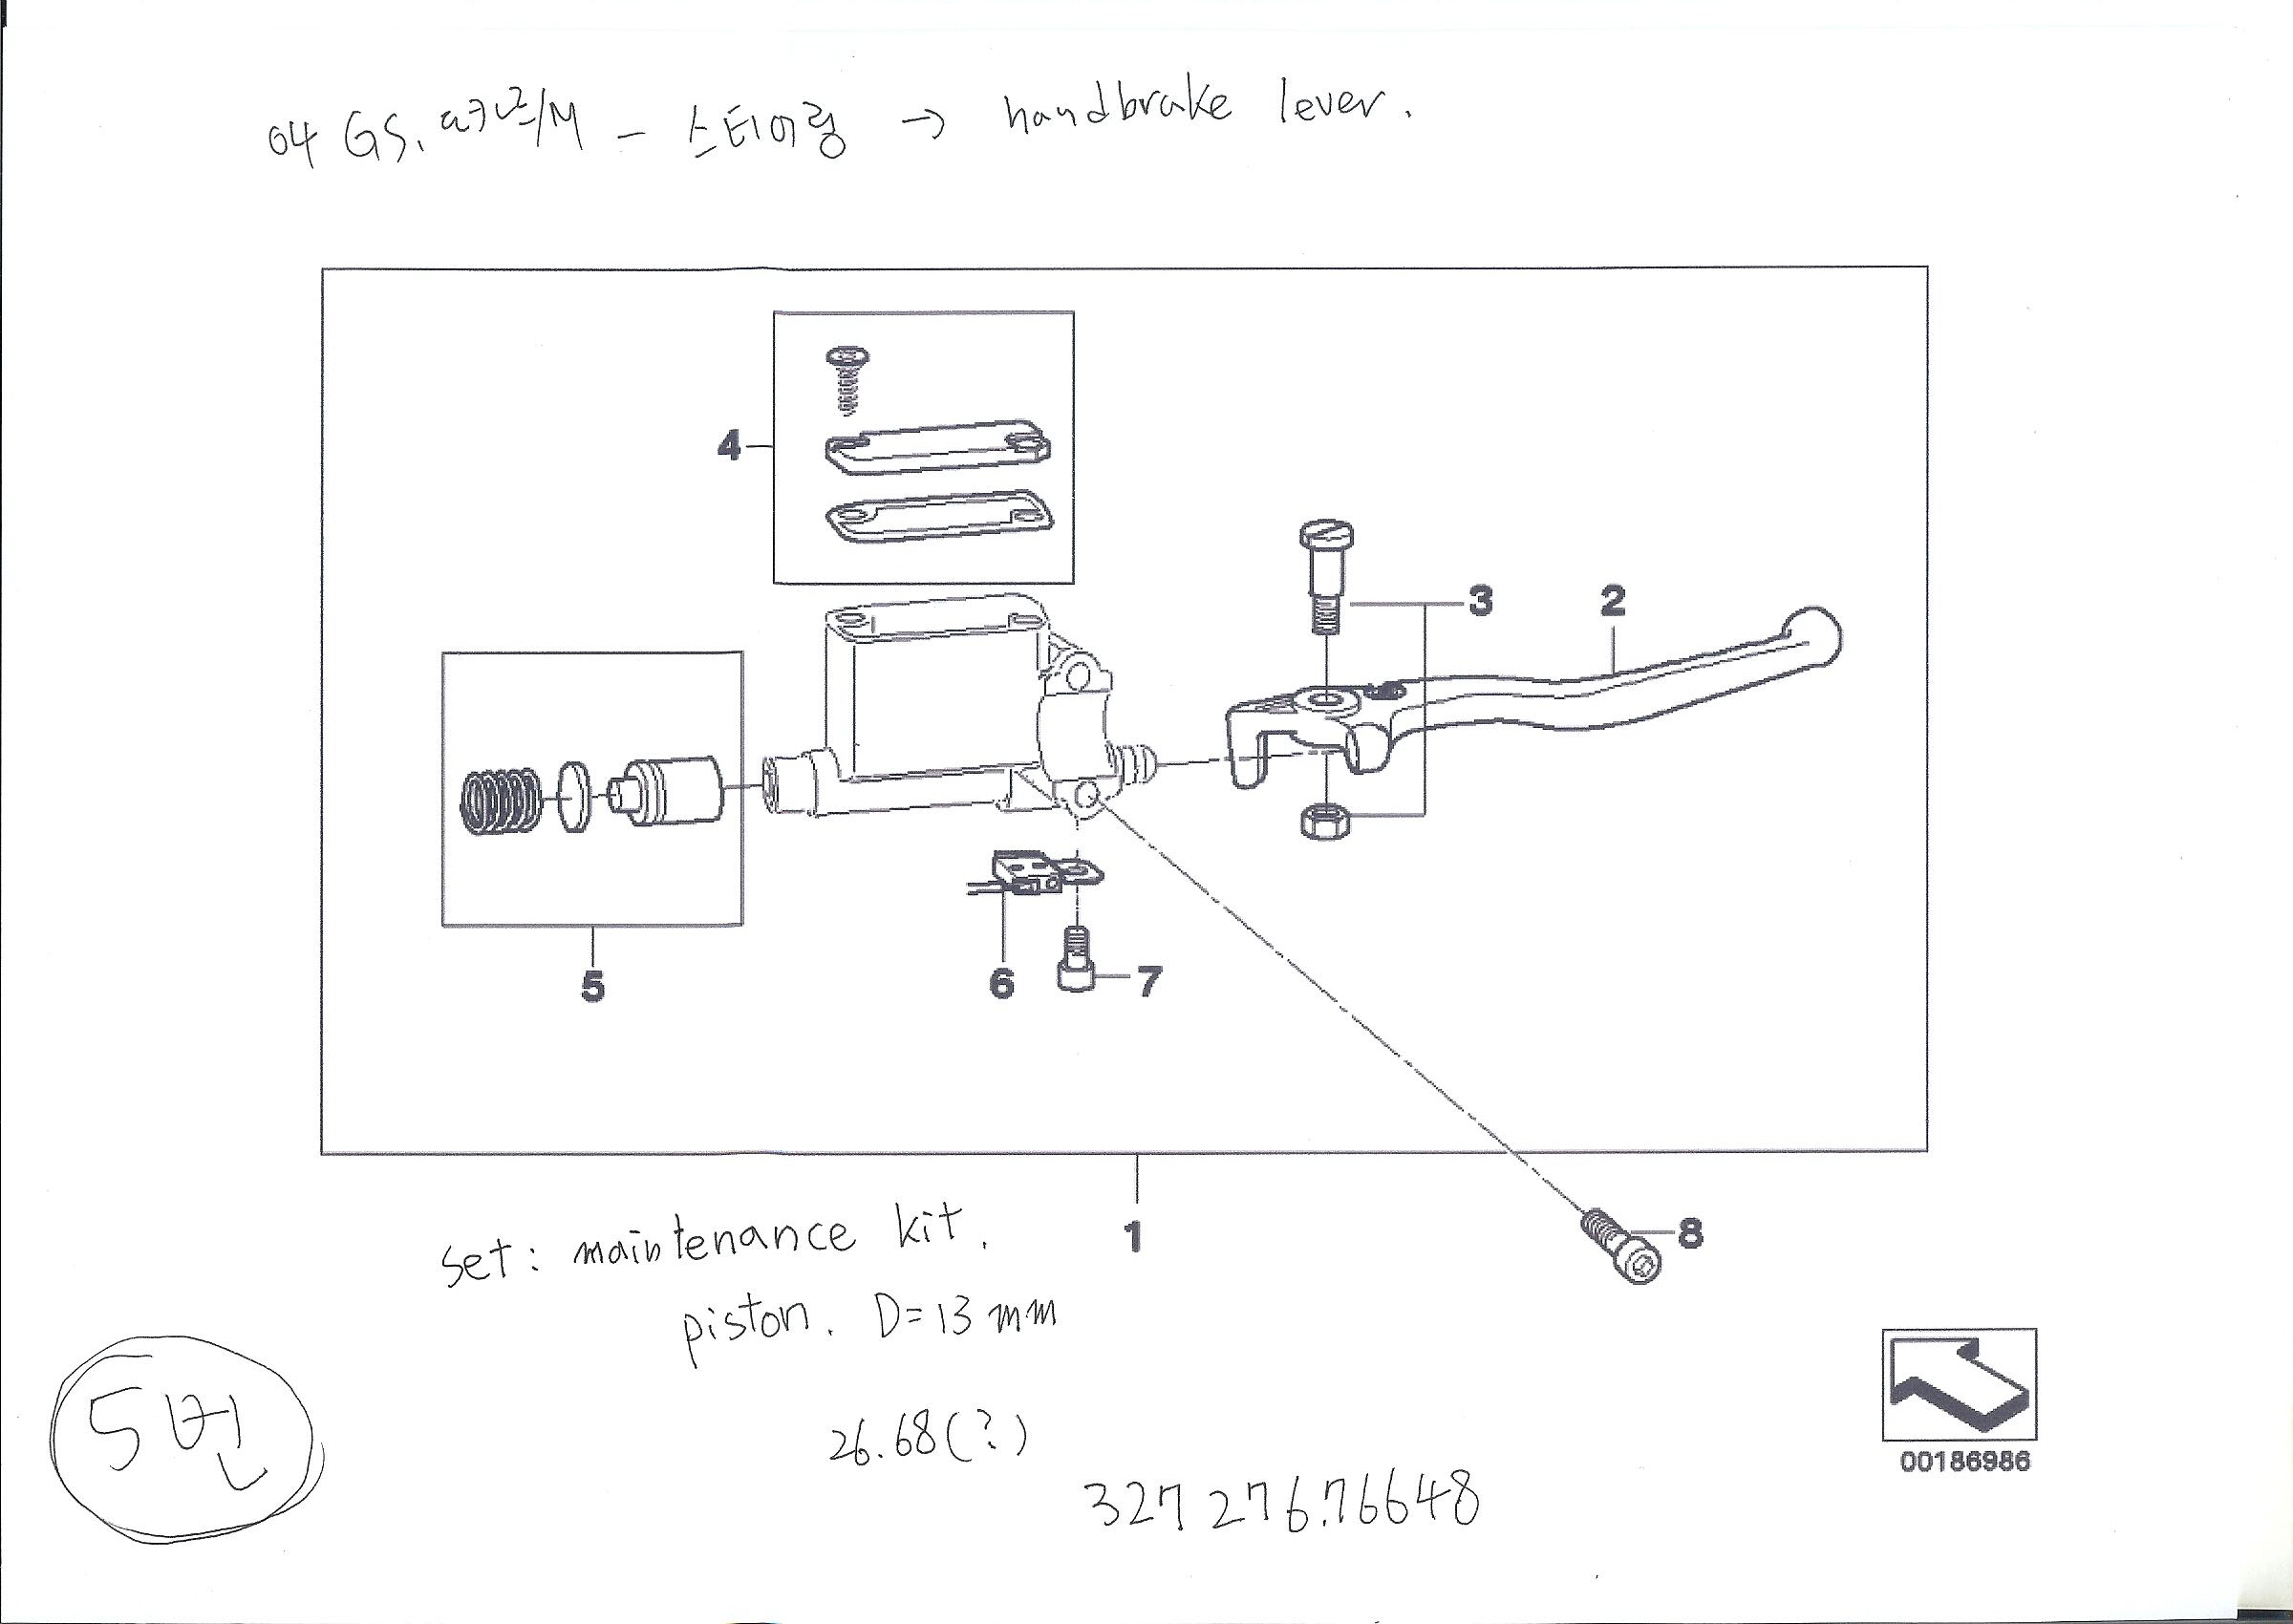 04 GS. – 스티어링 → handbrake lever.
4
3
2
5
6
7
1
8
set: maintenance kit.
piston. D=13 mm
5번
26.68(?)
327 276.76648
00186986